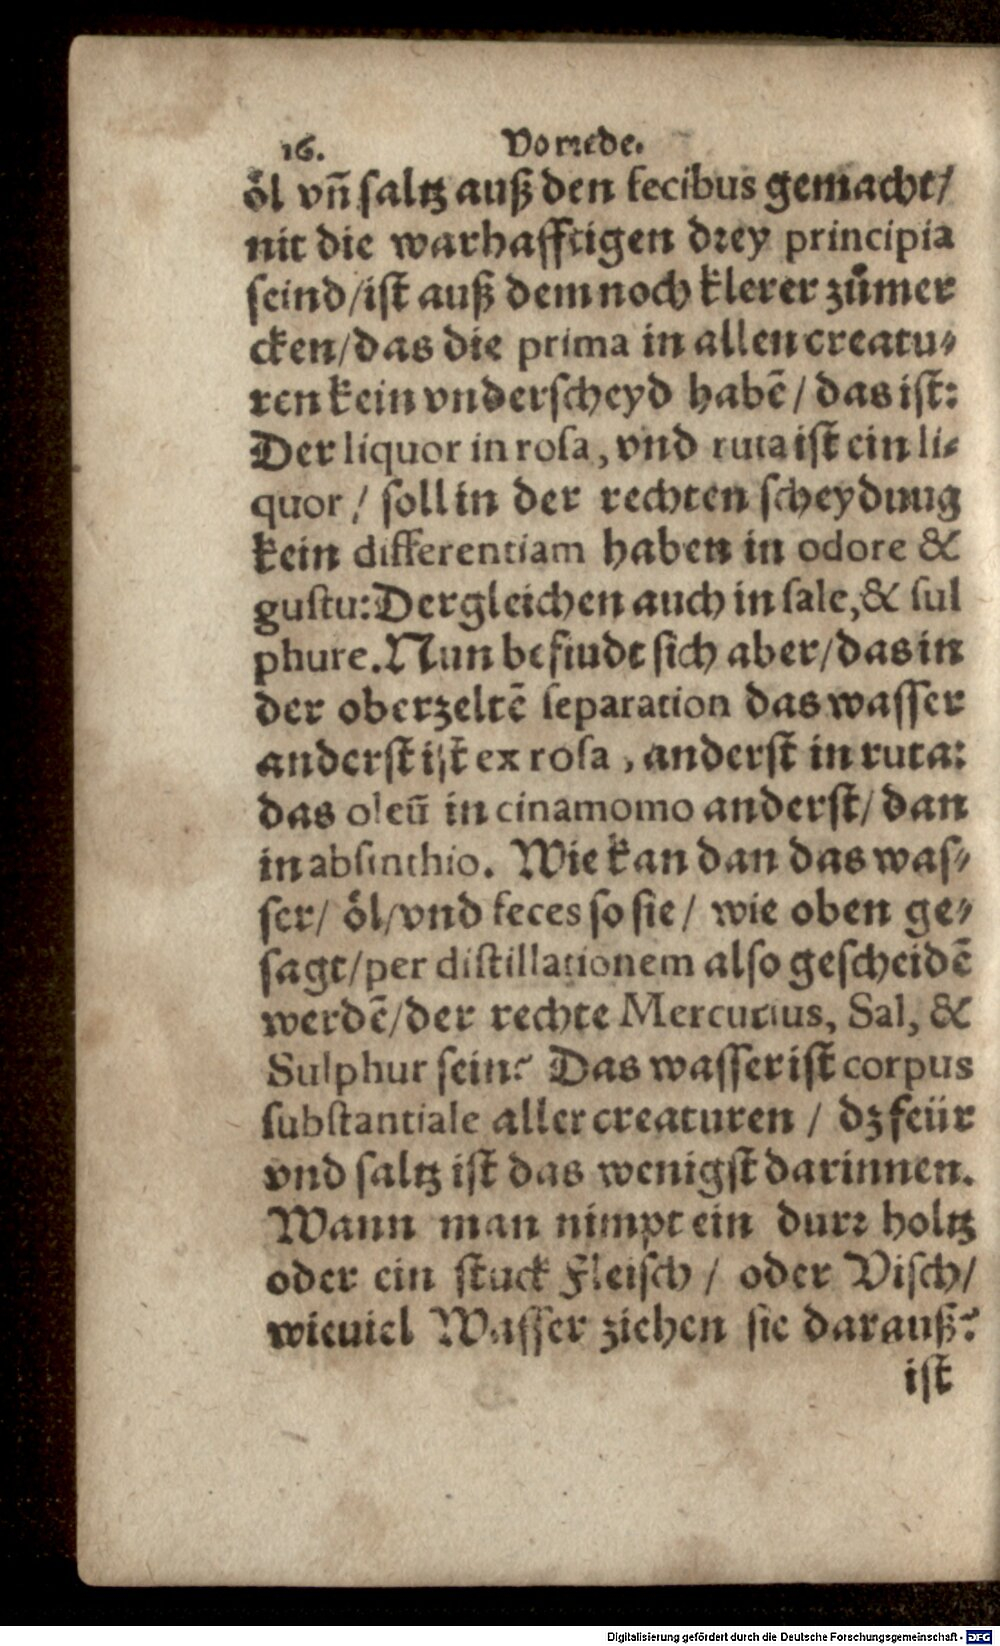 16. Vorrede.
öl vñ saltz auß den fecibus gemacht/
nit die warhafftigen drey principia
seind/ist auß dem noch klerer zůmer
cken/das die prima in allen creatu-
ren kein vnderscheyd habē/ das ist:
Der liquor in rosa, vnd ruta ist ein li-
quor / soll in der rechten scheydung
kein differentiam haben in odore &
gustu: Dergleichen auch in sale, & sul
phure. Nun befindt sich aber/das in
der oberzeltē separation das wasser
anderst ist ex rosa, anderst in ruta:
das oleū in cinamomo anderst/ dan
in absinthio. Wie kan dan das was-
ser/ öl/vnd feces so sie/ wie oben ge-
sagt/per distillationem also gescheidē
werdē/der rechte Mercurius, Sal, &
Sulphur sein? Das wasser ist corpus
substantiale aller creaturen / dz feür
vnd saltz ist das wenigst darinnen.
Wann man nimpt ein durr holtz
oder ein stuck Fleisch / oder Visch/
wieuiel Wasser ziehen sie darauß?
ist
Digitalisierung gefördert durch die Deutsche Forschungsgemeinschaft - DFG